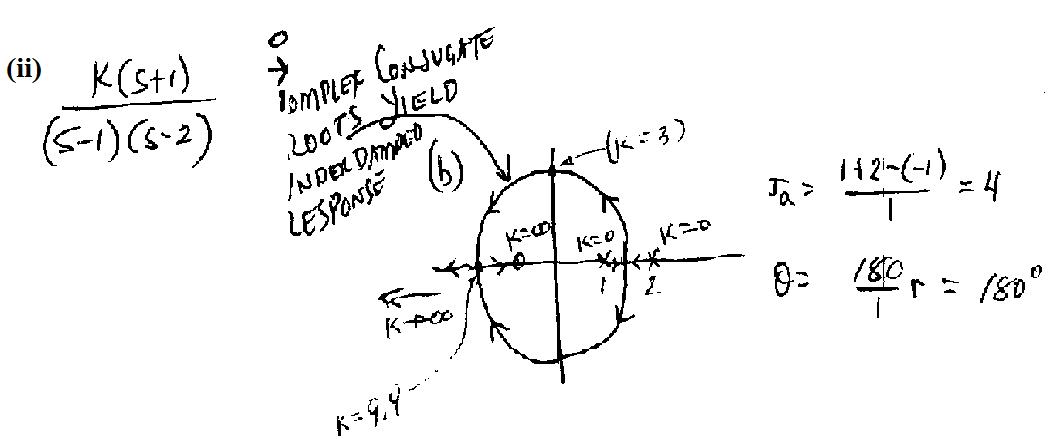 (ii) K(S+1)
(S-1)(S-2)
O
→
COMPLEX CONJUGATE
ROOTS YIELD
UNDERDAMPED
RESPONSE
(b)
(K=3)
K=∞
K=0
K=0
1
2
K→∞
K=9.9
σa = 1+2-(-1) = 4
1
θ = 180 r = 180°
1